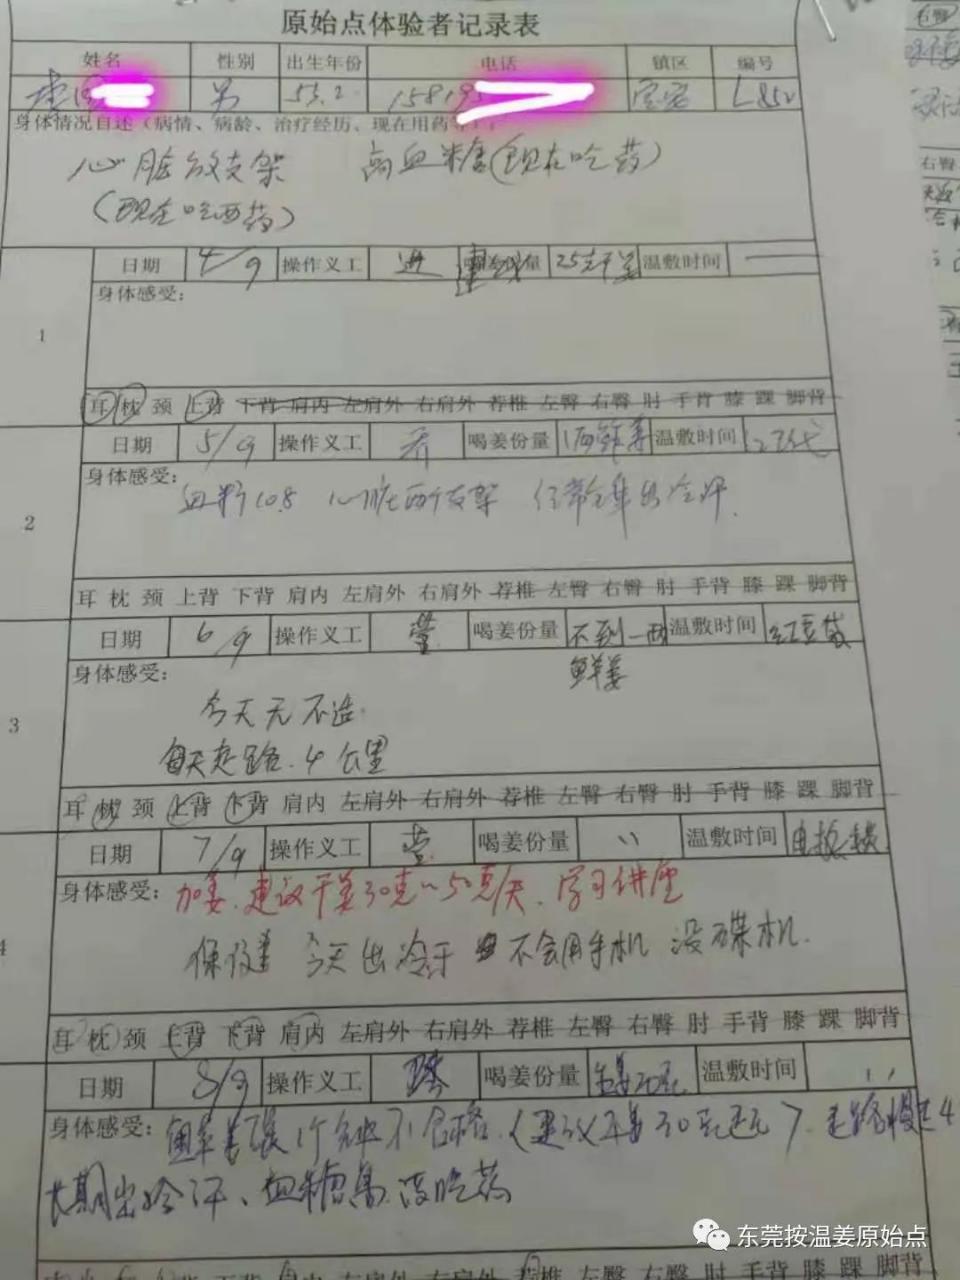 原始点体验者记录表
姓名 性别 出生年份 电话 镇区 编号
男 53.2 158195
身体情况自述（病情、病龄、治疗经历、现在用药等）：
心脏放支架 高血糖(现在吃药)
(现在吃西药)
日期 4/9 操作义工 喝姜份量 25克干姜 温敷时间
身体感受：
1
耳 枕 颈 上背 下背 肩内 左肩外 右肩外 荐椎 左臀 右臀 肘 手背 膝 踝 脚背
日期 5/9 操作义工 喝姜份量 温敷时间
身体感受：
血 10.8 心脏两个支架 经常全年出冷汗.
2
耳 枕 颈 上背 下背 肩内 左肩外 右肩外 荐椎 左臀 右臀 肘 手背 膝 踝 脚背
日期 6/9 操作义工 莹 喝姜份量 不到一两 温敷时间 红豆袋
鲜姜
身体感受：
今天无不适.
每天走路.4公里
3
耳 枕 颈 上背 下背 肩内 左肩外 右肩外 荐椎 左臀 右臀 肘 手背 膝 踝 脚背
日期 7/9 操作义工 莹 喝姜份量 〃 温敷时间
身体感受： 加姜.建议干姜30克~50克/天.学习讲座
今天出冷汗 不会用手机 没碟机.
4
耳 枕 颈 上背 下背 肩内 左肩外 右肩外 荐椎 左臀 右臀 肘 手背 膝 踝 脚背
日期 8/9 操作义工 喝姜份量 温敷时间 〃
身体感受： 1个钟不合格.(建议干姜30克 ) 走路慢走4
长期出冷汗、血糖高 没吃药
下背 肘 手背 膝 踝 脚背
东莞按温姜原始点